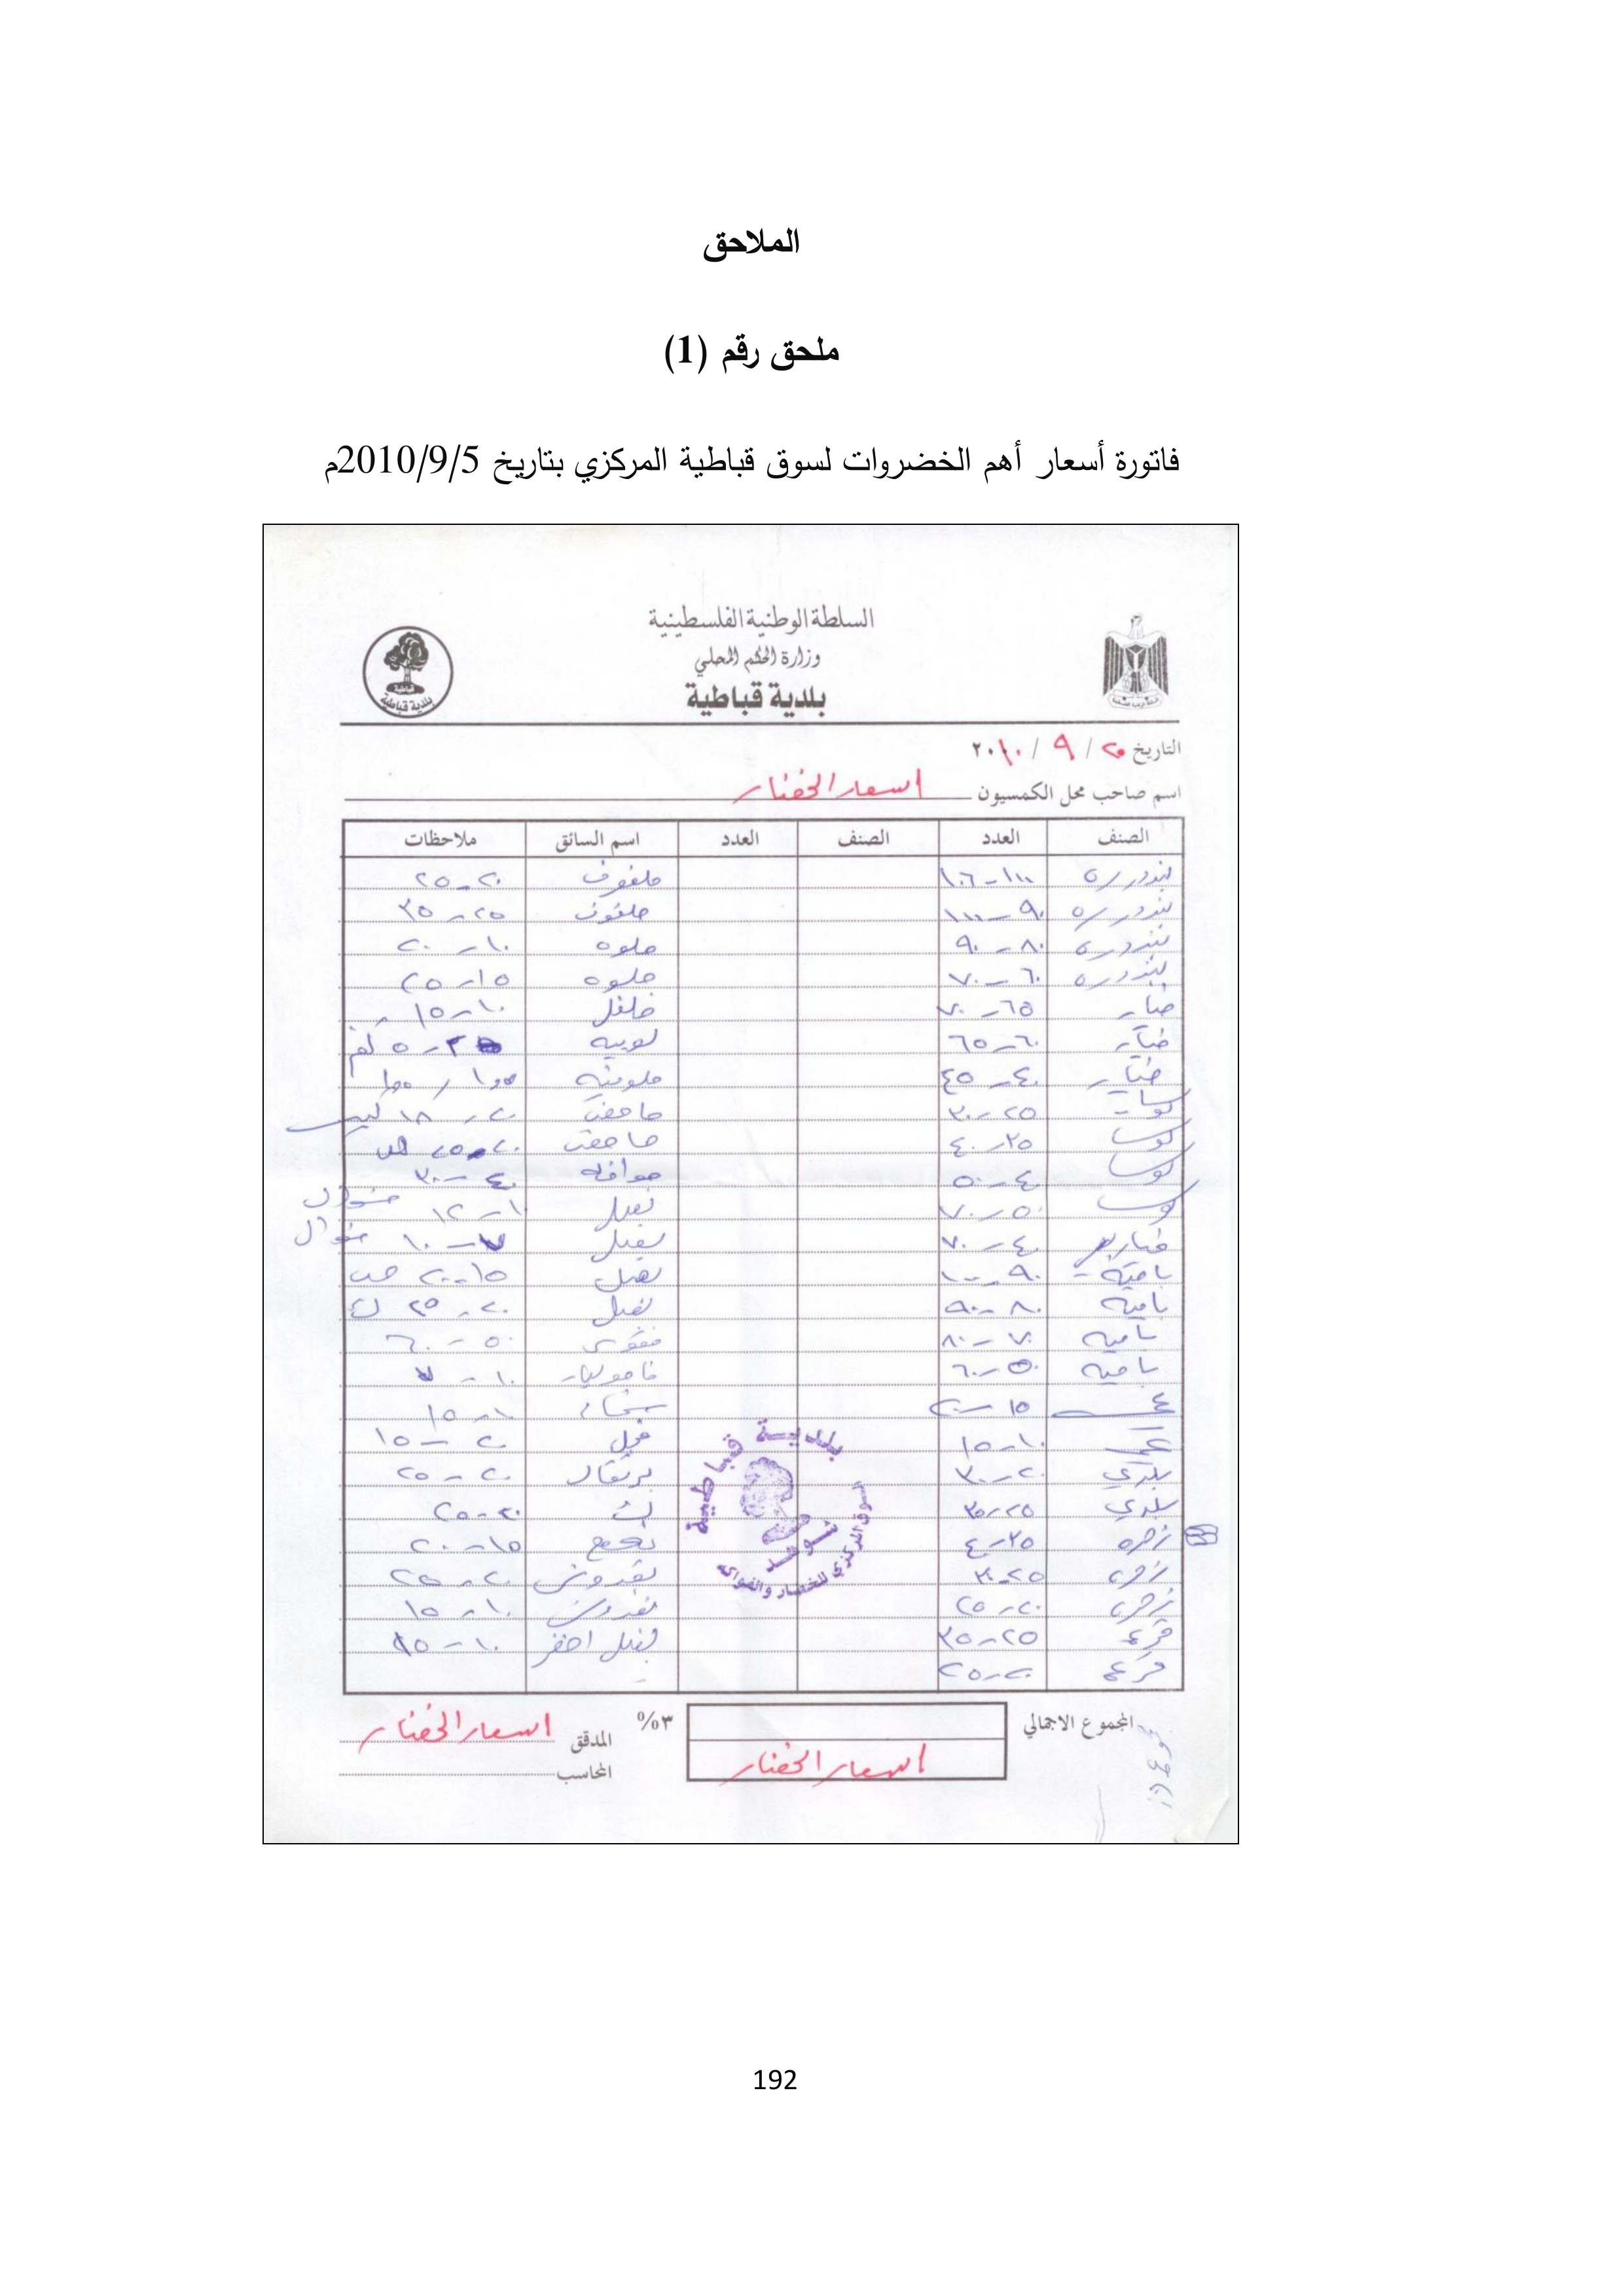 الملاحق
ملحق رقم (1)
فاتورة أسعار أهم الخضروات لسوق قباطية المركزي بتاريخ 2010/9/5م
السلطة الوطنية الفلسطينية
وزارة الحكم المحلي
بلدية قباطية
بلدية قباطية
التاريخ ٢٠ / ٩ / ٢٠١٠
اسم صاحب محل الكمسيون اسعار الخضار
الصنف العدد الصنف العدد اسم السائق ملاحظات
بندوره ١٠٠-١٠٦ ملفوف ٢٠-٢٥
بندوره ٩٠-١٠٠ ملفوف ٢٥-٣٥
بندوره ٨٠-٩٠ ملوه ١٠-٢٠
بندوره ٦٠-٧٠ ملوه ١٥-٢٥
خيار ٦٥-٧٠ فلفل ١٠-١٥
خيار ٦٠-٦٥ لوبيه
خيار ٤٠-٤٥ ملوخيه
كوسا ٢٥-٣٠ ٢٠-١٨
كوسا ٣٥-٤٠
كوسا ٤٠-٥٠ جوافه ٤٠-٣٠
كوسا ٥٠-٧٠ بصل ١٠-١٢ شوال
٤٠-٧٠ بصل ٧-١٠ شوال
باميه ٩٠-١٠٠ بصل ١٥-٢٠
باميه ٨٠-٩٠ بصل ٢٠-٢٥
باميه ٧٠-٨٠ فقوس ٥٠-٦٠
باميه ٥٠-٦٠ ١٠-٧
١٥-٢٠ ١٠-١٥
١٠-١٥ فجل ٢٠-١٥
بلدي ٢٠-٣٠ برتقال ٢٠-٢٥
بلدي ٢٥-٣٥ ٢٠-٢٥
زهره ٣٥-٤٠ نعنع ١٥-٢٠
زهره ٢٥-٣٠ بقدونس ٢٠-٢٥
زهره ٢٠-٢٥ بقدونس ١٠-١٥
قرع ٢٥-٣٥ بصل اخضر ١٠-١٥
قرع ٢٠-٢٥
بلدية قباطية
السوق المركزي للخضار والفواكه
المجموع الاجمالي ٣% المدقق اسعار الخضار
اسعار الخضار
المحاسب
192